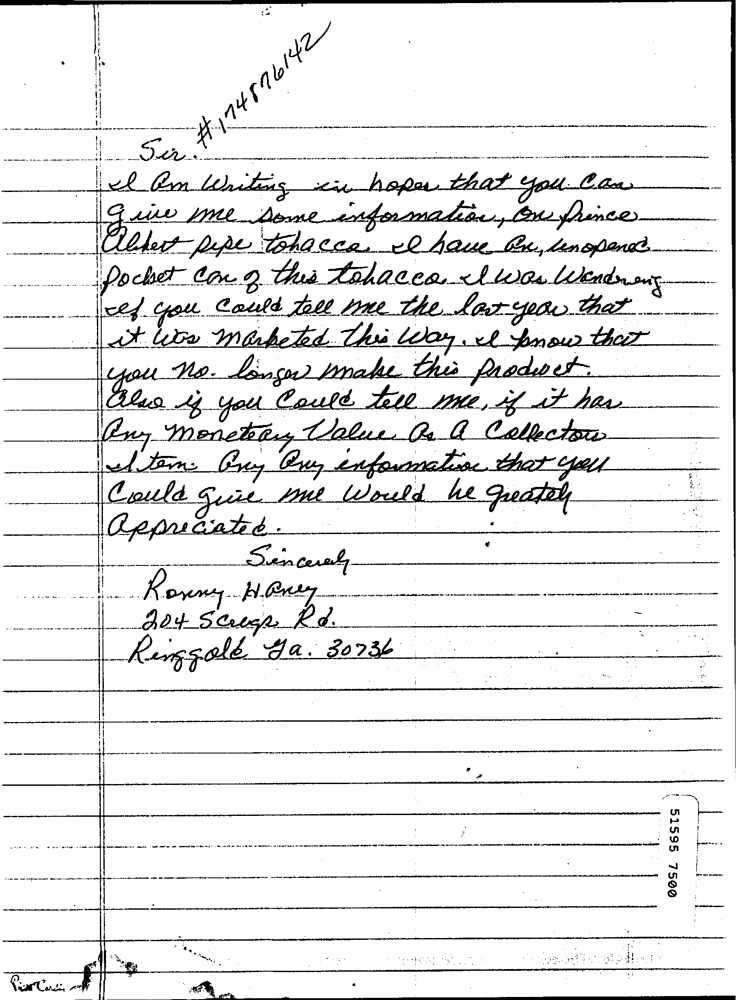 #174876142
Sir.
I Am Writing in hopes that you can
give me some information, on prince
Albert pipe tobacco. I have an, unopened
pocket can of this tobacco. I was Wondreng
if you could tell me the last year that
it was marketed this way. I know that
you no. longer make this product.
Also if you could tell me, if it has
Any monetary Value As A Collectors
Item. Any Any information that you
Could give me would be greately
Appreciated.
Sincerely
Ronny Haney
204 Scrugs Rd.
Ringgold Ga. 30736
51595 7500